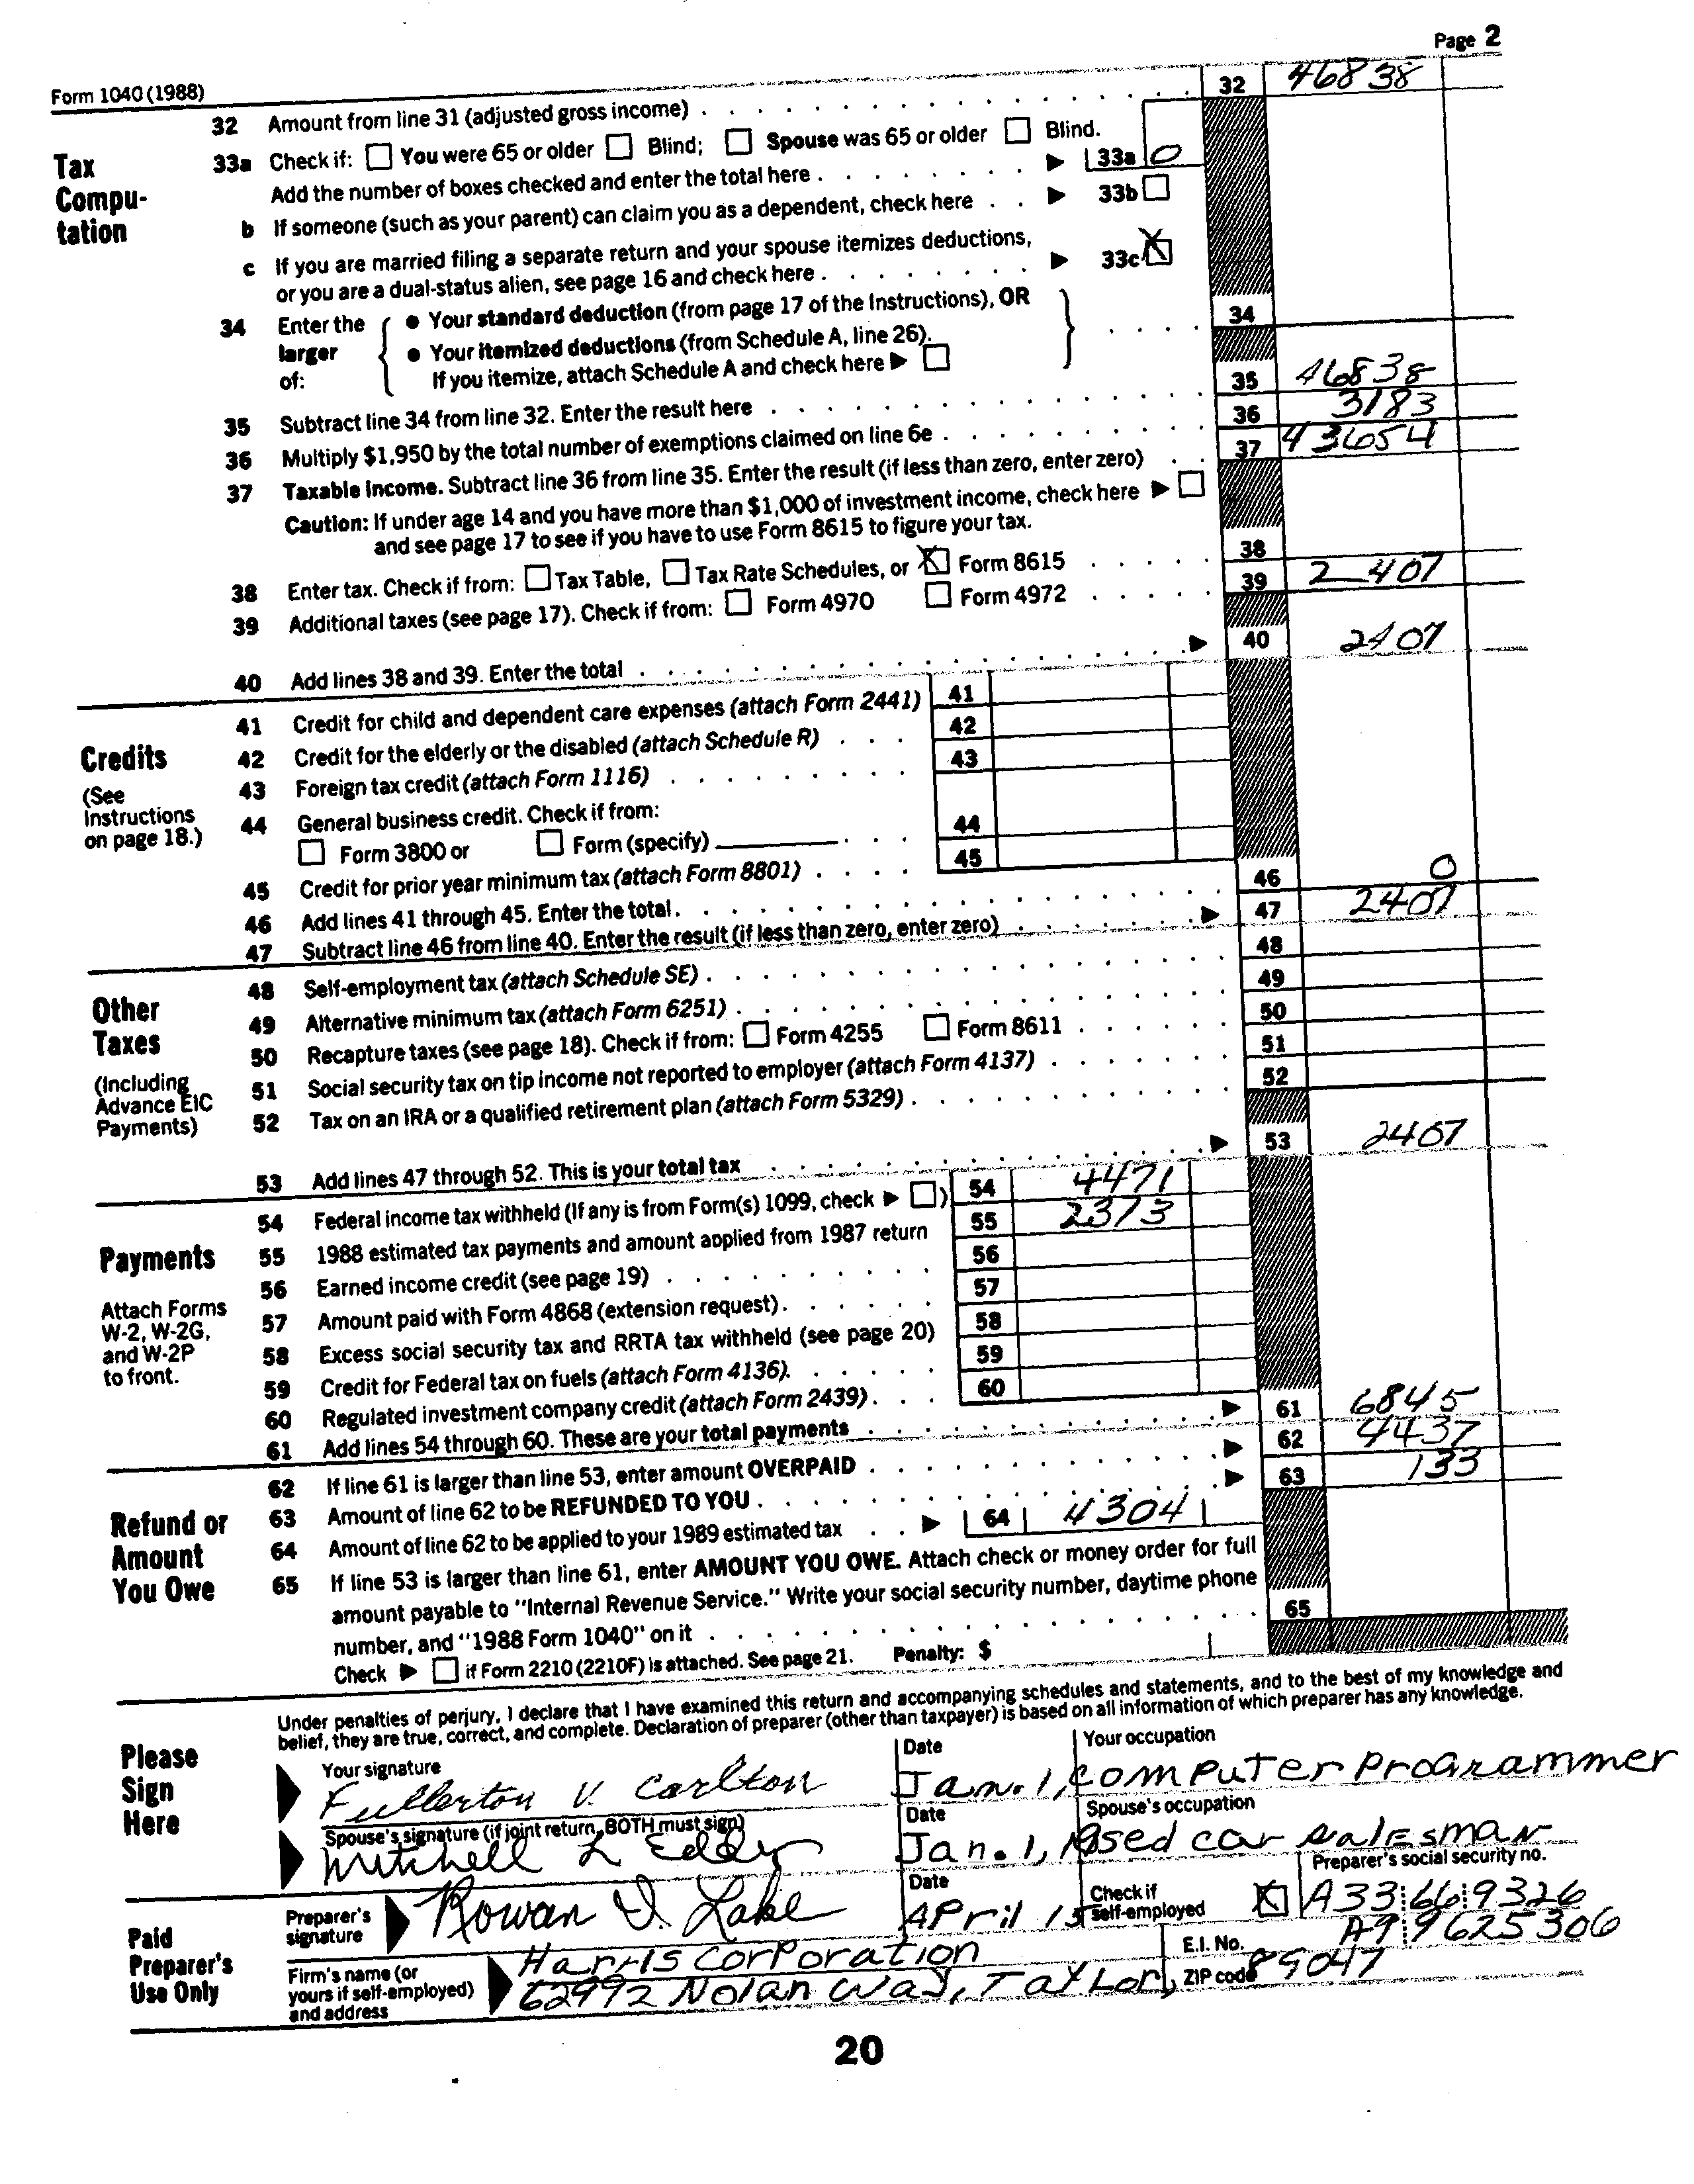 Page 2
Form 1040 (1988)
32 Amount from line 31 (adjusted gross income) 32 46838
Tax Compu- tation
33a Check if: You were 65 or older Blind; Spouse was 65 or older Blind.
Add the number of boxes checked and enter the total here 33a 0
b If someone (such as your parent) can claim you as a dependent, check here 33b
c If you are married filing a separate return and your spouse itemizes deductions,
or you are a dual-status alien, see page 16 and check here 33c X
34 Enter the larger of:
● Your standard deduction (from page 17 of the Instructions), OR
● Your itemized deductions (from Schedule A, line 26).
If you itemize, attach Schedule A and check here
34
35 Subtract line 34 from line 32. Enter the result here 35 46838
36 Multiply $1,950 by the total number of exemptions claimed on line 6e 36 3183
37 Taxable income. Subtract line 36 from line 35. Enter the result (if less than zero, enter zero) 37 43654
Caution: If under age 14 and you have more than $1,000 of investment income, check here
and see page 17 to see if you have to use Form 8615 to figure your tax.
38 Enter tax. Check if from: Tax Table, Tax Rate Schedules, or X Form 8615 38
39 Additional taxes (see page 17). Check if from: Form 4970 Form 4972 39 2407
40 Add lines 38 and 39. Enter the total 40 2407
Credits
(See Instructions on page 18.)
41 Credit for child and dependent care expenses (attach Form 2441) 41
42 Credit for the elderly or the disabled (attach Schedule R) 42
43 Foreign tax credit (attach Form 1116) 43
44 General business credit. Check if from:
Form 3800 or Form (specify) 44
45 Credit for prior year minimum tax (attach Form 8801) 45
46 Add lines 41 through 45. Enter the total. 46 0
47 Subtract line 46 from line 40. Enter the result (if less than zero, enter zero) 47 2407
Other Taxes
(Including Advance EIC Payments)
48 Self-employment tax (attach Schedule SE) 48
49 Alternative minimum tax (attach Form 6251) 49
50 Recapture taxes (see page 18). Check if from: Form 4255 Form 8611 50
51 Social security tax on tip income not reported to employer (attach Form 4137) 51
52 Tax on an IRA or a qualified retirement plan (attach Form 5329) 52
53 Add lines 47 through 52. This is your total tax 53 2407
Payments
Attach Forms W-2, W-2G, and W-2P to front.
54 Federal income tax withheld (If any is from Form(s) 1099, check ) 54 4471
55 1988 estimated tax payments and amount applied from 1987 return 55 2373
56 Earned income credit (see page 19) 56
57 Amount paid with Form 4868 (extension request) 57
58 Excess social security tax and RRTA tax withheld (see page 20) 58
59 Credit for Federal tax on fuels (attach Form 4136). 59
60 Regulated investment company credit (attach Form 2439) 60
61 Add lines 54 through 60. These are your total payments 61 6845
Refund or Amount You Owe
62 If line 61 is larger than line 53, enter amount OVERPAID 62 4437
63 Amount of line 62 to be REFUNDED TO YOU 63 133
64 Amount of line 62 to be applied to your 1989 estimated tax 64 4304
65 If line 53 is larger than line 61, enter AMOUNT YOU OWE. Attach check or money order for full
amount payable to "Internal Revenue Service." Write your social security number, daytime phone
number, and "1988 Form 1040" on it 65
Check if Form 2210 (2210F) is attached. See page 21. Penalty: $
Please Sign Here
Under penalties of perjury, I declare that I have examined this return and accompanying schedules and statements, and to the best of my knowledge and
belief, they are true, correct, and complete. Declaration of preparer (other than taxpayer) is based on all information of which preparer has any knowledge.
Your signature Date Your occupation
Fullerton V. Carlton Jan. 1, computer programmer
Spouse's signature (if joint return, BOTH must sign) Date Spouse's occupation
Mitchell L Eddy Jan. 1, 19 used car salesman
Paid Preparer's Use Only
Preparer's signature Date Check if self-employed Preparer's social security no.
Rowan D. Lake April 15 X A33 66 9326
Firm's name (or yours if self-employed) and address E.I. No. ZIP code
Harris Corporation A99625306
62992 Nolan Way, Taylor, 89047
20